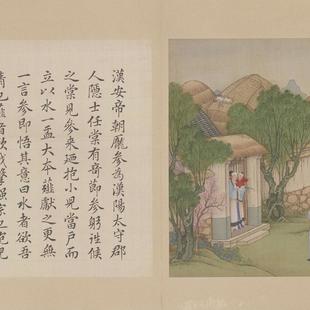 漢安帝朝龐參為漢陽太守郡
人隱士任棠有奇節參躬詣候
之棠見參來廼抱小兒當戶而
立以水一盂大本薤獻之更無
一言參即悟其意曰水者欲吾
清也薤者欲我擊强宗也抱兒